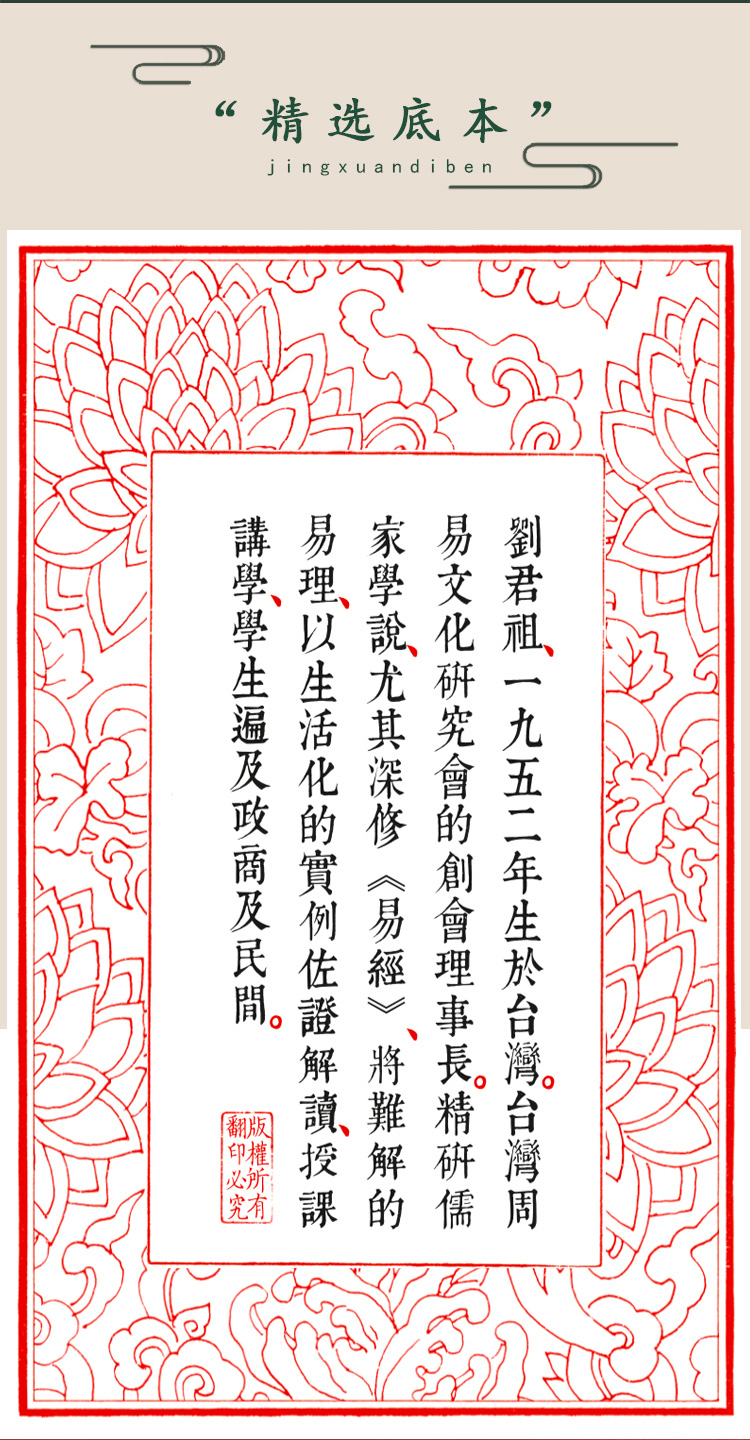 “精选底本”
jingxuandiben
劉君祖、一九五二年生於台灣。台灣周
易文化研究會的創會理事長。精研儒
家學說、尤其深修《易經》、將難解的
易理、以生活化的實例佐證解讀、授課
講學、學生遍及政商及民間。
版權所有
翻印必究